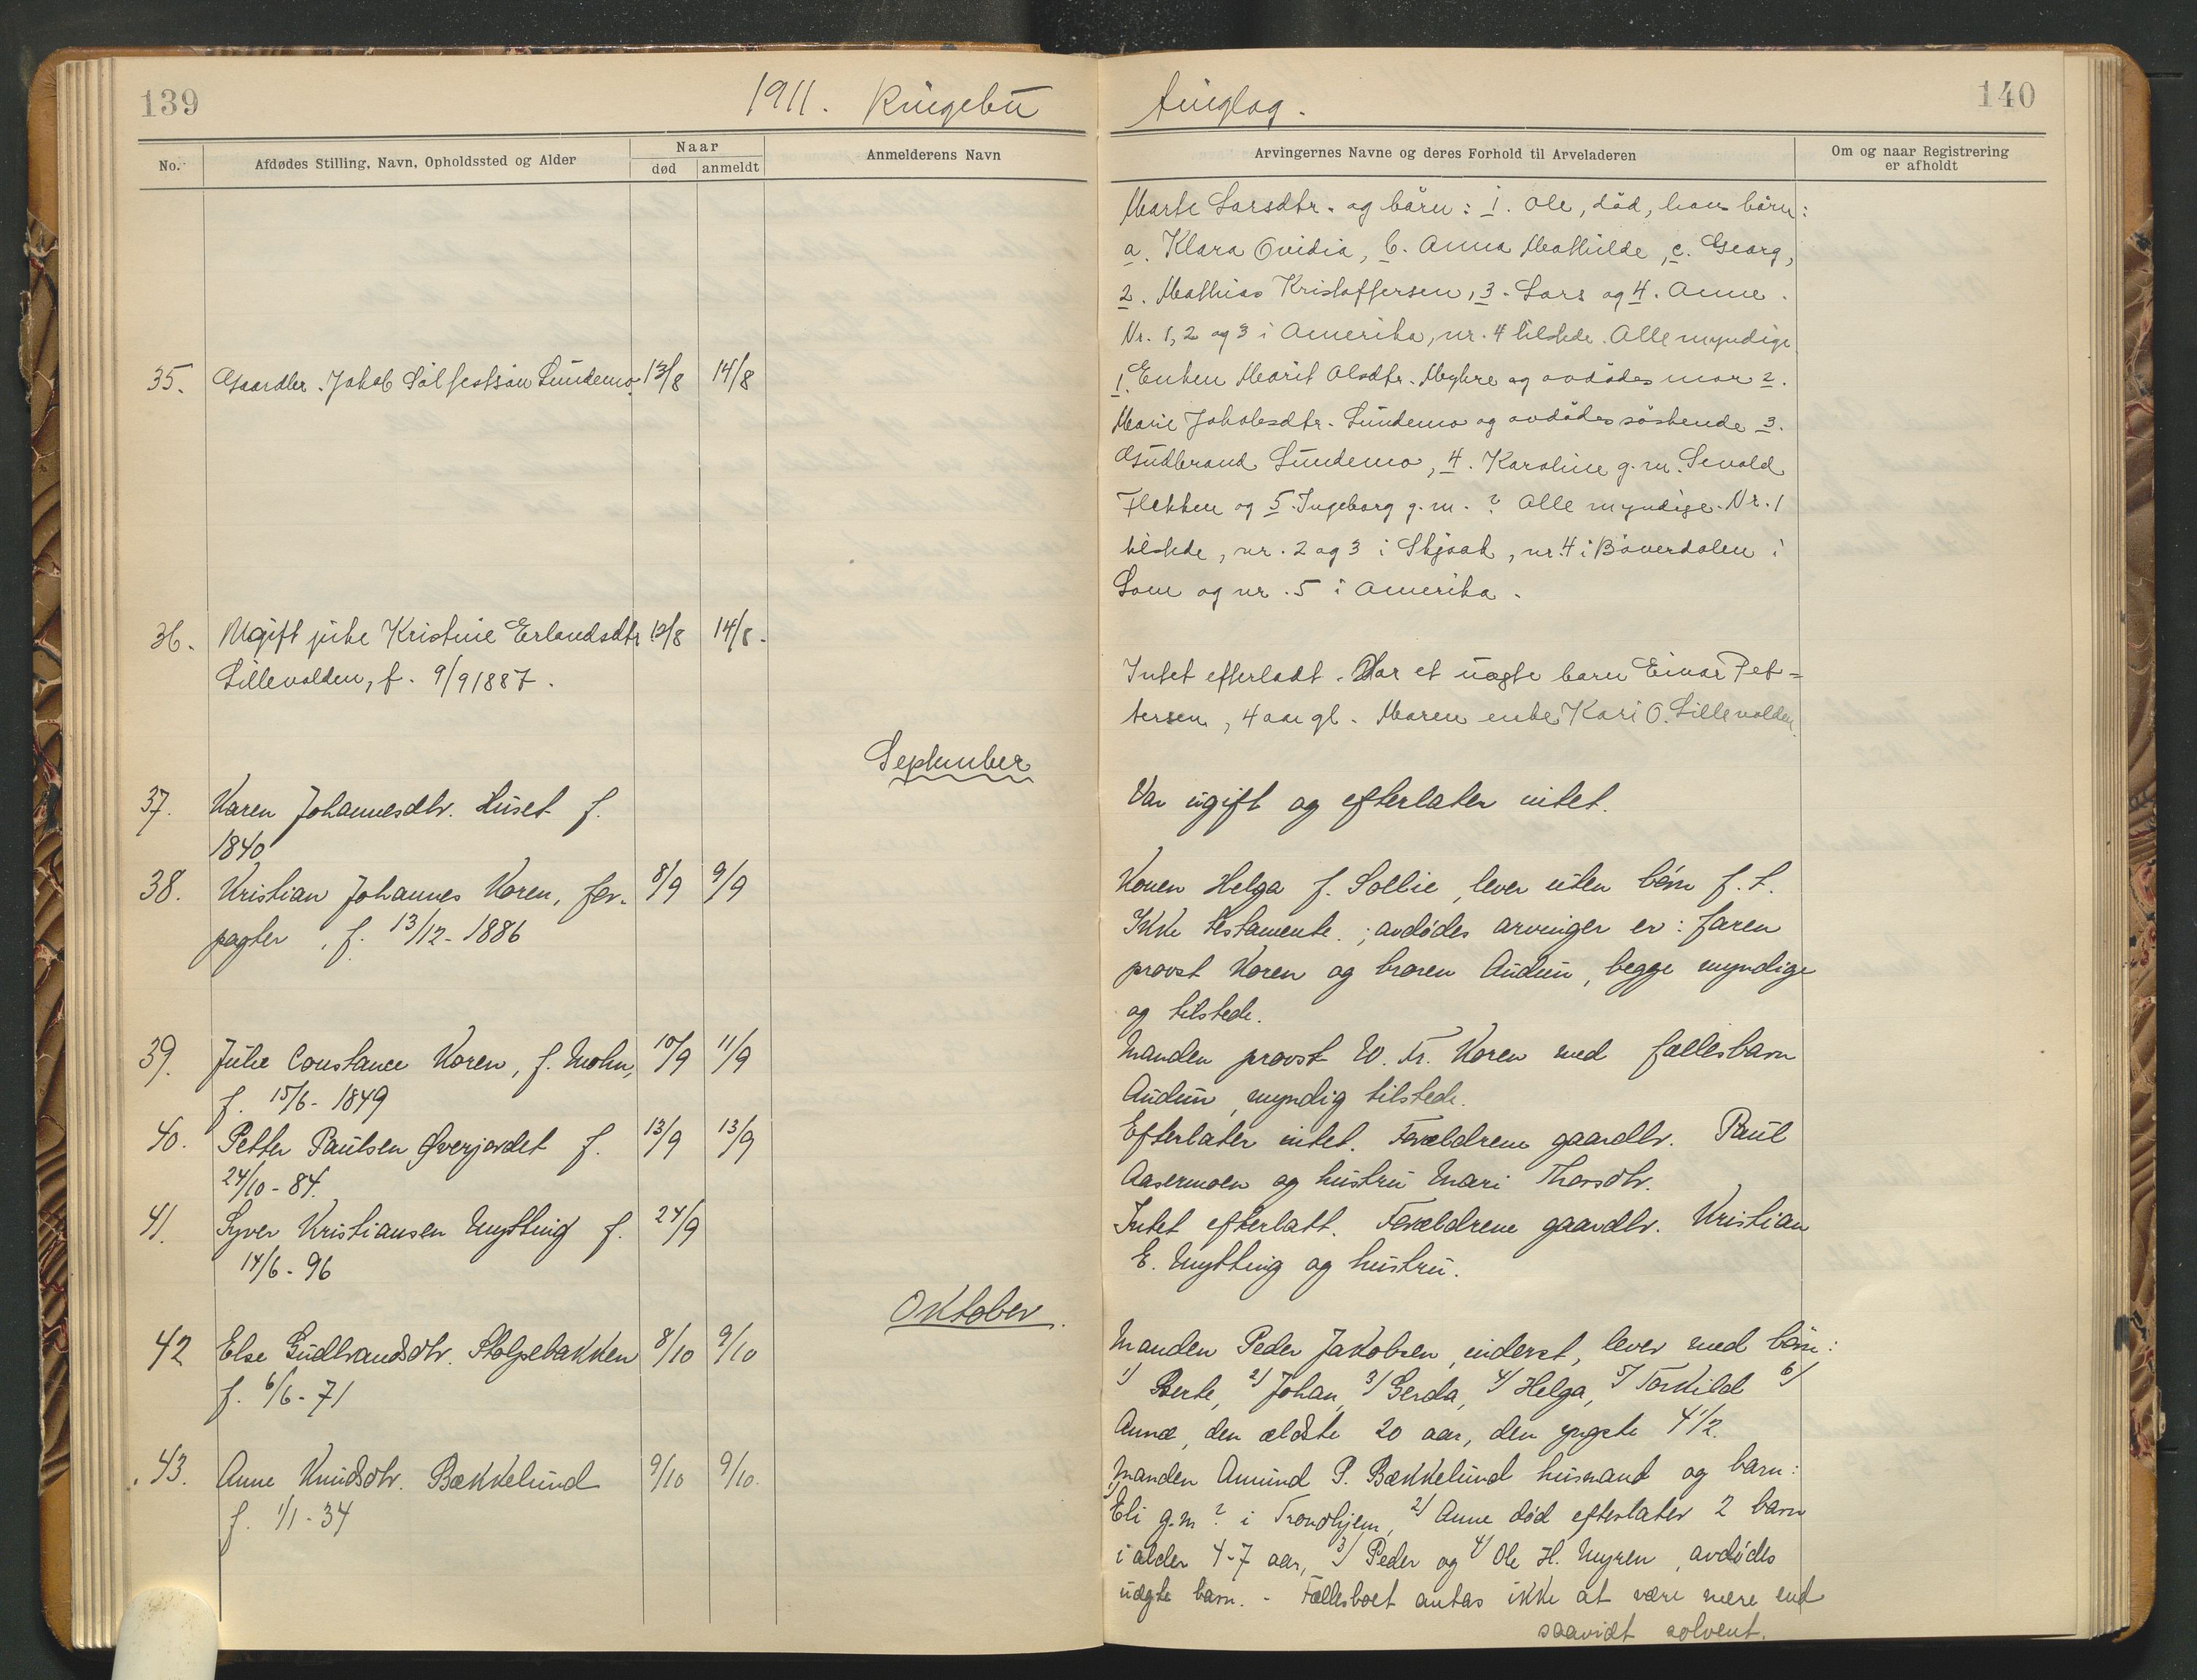 139
1911. Ringebu
tinglag.
140
No.
Afdødes Stilling, Navn, Opholdssted og Alder
Naar
død
anmeldt
Anmelderens Navn
Arvingernes Navne og deres Forhold til Arveladeren
Om og naar Registrering
er afholdt
Marte Larsdtr. og børn: 1. Ole, død, hans børn:
a. Klara Ovidia, b. Anna Mathilde, c. Georg,
2. Mathias Kristoffersen, 3. Lars og 4. Anne.
Nr. 1, 2 og 3 i Amerika, nr. 4 tilstede. Alle myndige
35. Gaardbr. Jakob Sølfestsøn Sundemo. 13/8 14/8
1. Enken Marit Olsdtr. Myhre og avdødes mor 2.
Marie Jakobsdtr. Sundemo og avdødes søskende 3.
Gudbrand Sundemo, 4. Karoline g.m. Sevald
Flekken og 5. Ingeborg g.m. ? Alle myndige. Nr. 1
tilstede, nr. 2 og 3 i Skjaak, nr. 4 i Bøverdalen i
Lom og nr. 5 i Amerika.
36. Ugift pike Kristine Erlandsdtr 12/8 14/8.
Lillevolden, f. 9/9 1887.
Intet efterladt. Har et uægte barn Einar Pet=
tersen, 4 aar gl. Moren enke Kari O. Lillevolden.
September
37. Karen Johannesdtr. Huset f.
1840
Var ugift og efterlater intet.
38. Kristian Johannes Koren, for- 8/9 9/9
pagter, f. 13/12-1886
Konen Helga f. Sollie, lever uten børn f. t.
Ikke testamente.; avdødes arvinger er: faren
provst Koren og broren Audun, begge myndige
og tilstede.
39. Julie Constance Koren, f. Mohn, 10/9 11/9
f. 15/6-1849
Manden provst W. Fr. Koren med fællesbarn
Audun, myndig tilstede.
40. Petter Paulsen Øverjordet f. 13/9 13/9
24/10-84.
Efterlater intet. Forældrene gaardbr. Paul
Aasermoen og hustru Mari Thorsdtr.
41. Syver Kristiansen Mytting f. 24/9
14/6-96
Intet efterlatt. Forældrene gaardbr. Kristian
E. Mytting og hustru.
Oktober.
42 Else Gudbrandsdtr. Stolpebakken 8/10 9/10
f. 6/6-71
Manden Peder Jakobsen, inderst, lever med børn:
1/ Berte, 2/ Johan, 3/ Gerda, 4/ Helga, 5/ Torkild 6/
Anna, den ældste 20 aar, den yngste 4 1/2.
43. Anne Knudsdtr. Bækkelund 9/10 9/10.
f. 1/1-34
Manden Amund P. Bækkelund husmand og barn:
1/ Eli g.m ? i Trondhjem, 2/ Anne død efterlater 2 barn
i alder 4-7 aar, 3/ Peder og 4/ Ole H. Myren, avdødes
uægte barn. - Fællesboet antas ikke at være mere end
saavidt solvent.